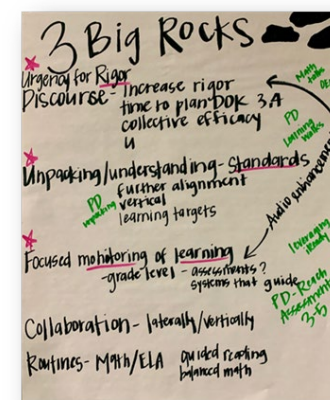 3 Big Rocks
Urgency for Rigor
Discourse - Increase rigor
time to plan DOK 3,4
collective efficacy
u
Math
talks
PD
Learning
Walks
Unpacking/understanding - Standards
further alignment
vertical
learning targets
PD
unpacking
Audio enhancement
Focused monitoring of learning
-grade level - assessments?
systems that guide
leveraging
PD - Reach
Assessment
3-5
Collaboration - laterally/vertically
Routines - Math/ELA guided reading
balanced math